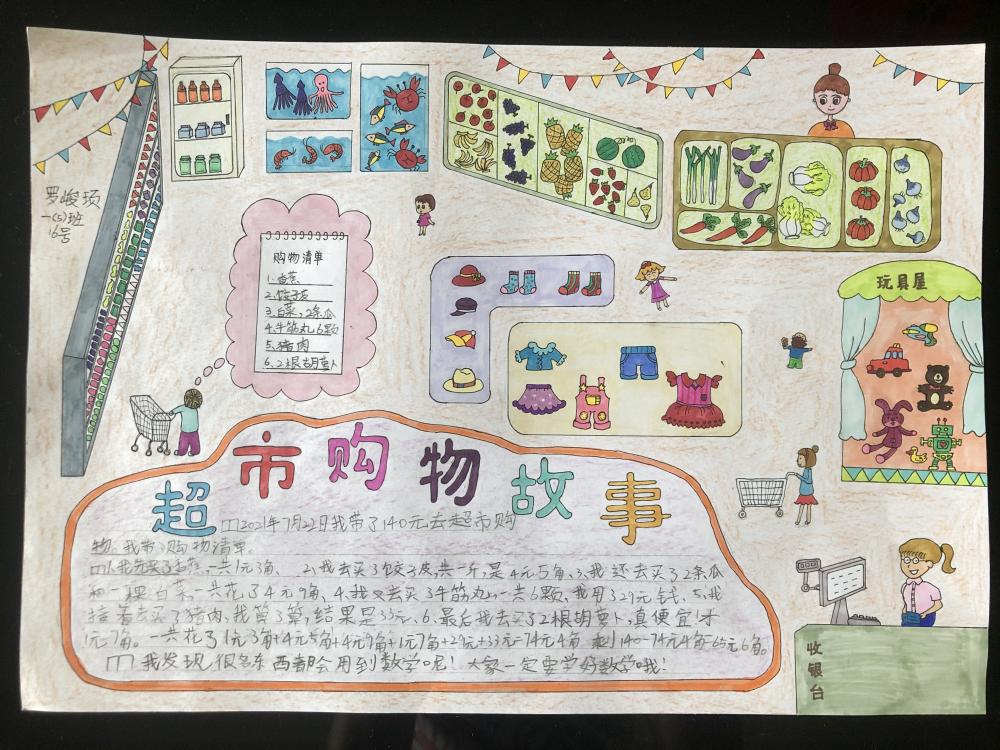 罗峻顼
一(5)班
16号
购物清单
1.香蕉
2.饺子皮
3.白菜,2条瓜
4.牛筋丸6颗
5.猪肉
6.2根胡萝卜
玩具屋
超市购物故事
2021年7月22日我带了140元去超市购
物。我带了购物清单。
1、我先买了香蕉,一共1元3角、 2、我去买了饺子皮,共一斤,是4元5角、3、我还去买了2条瓜
和一棵白菜,一共花了4元9角、4、我又去买了牛筋丸,一共6颗、我用了29元钱、5、我
接着去买了猪肉,我算了算,结果是33元、6、最后我去买了2根胡萝卜,真便宜!才
1元7角。一共花了1元3角+4元5角+4元9角+1元7角+29元+33元=74元4角 剩140-74元4角=65元6角。
我发现很多东西都会用到数学呢!大家一定要学好数学哦!
收银台